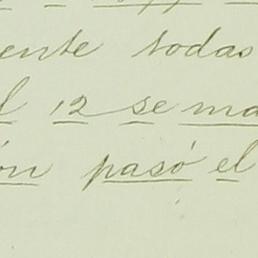 ente todas
l 12 se ma
ón pasó el